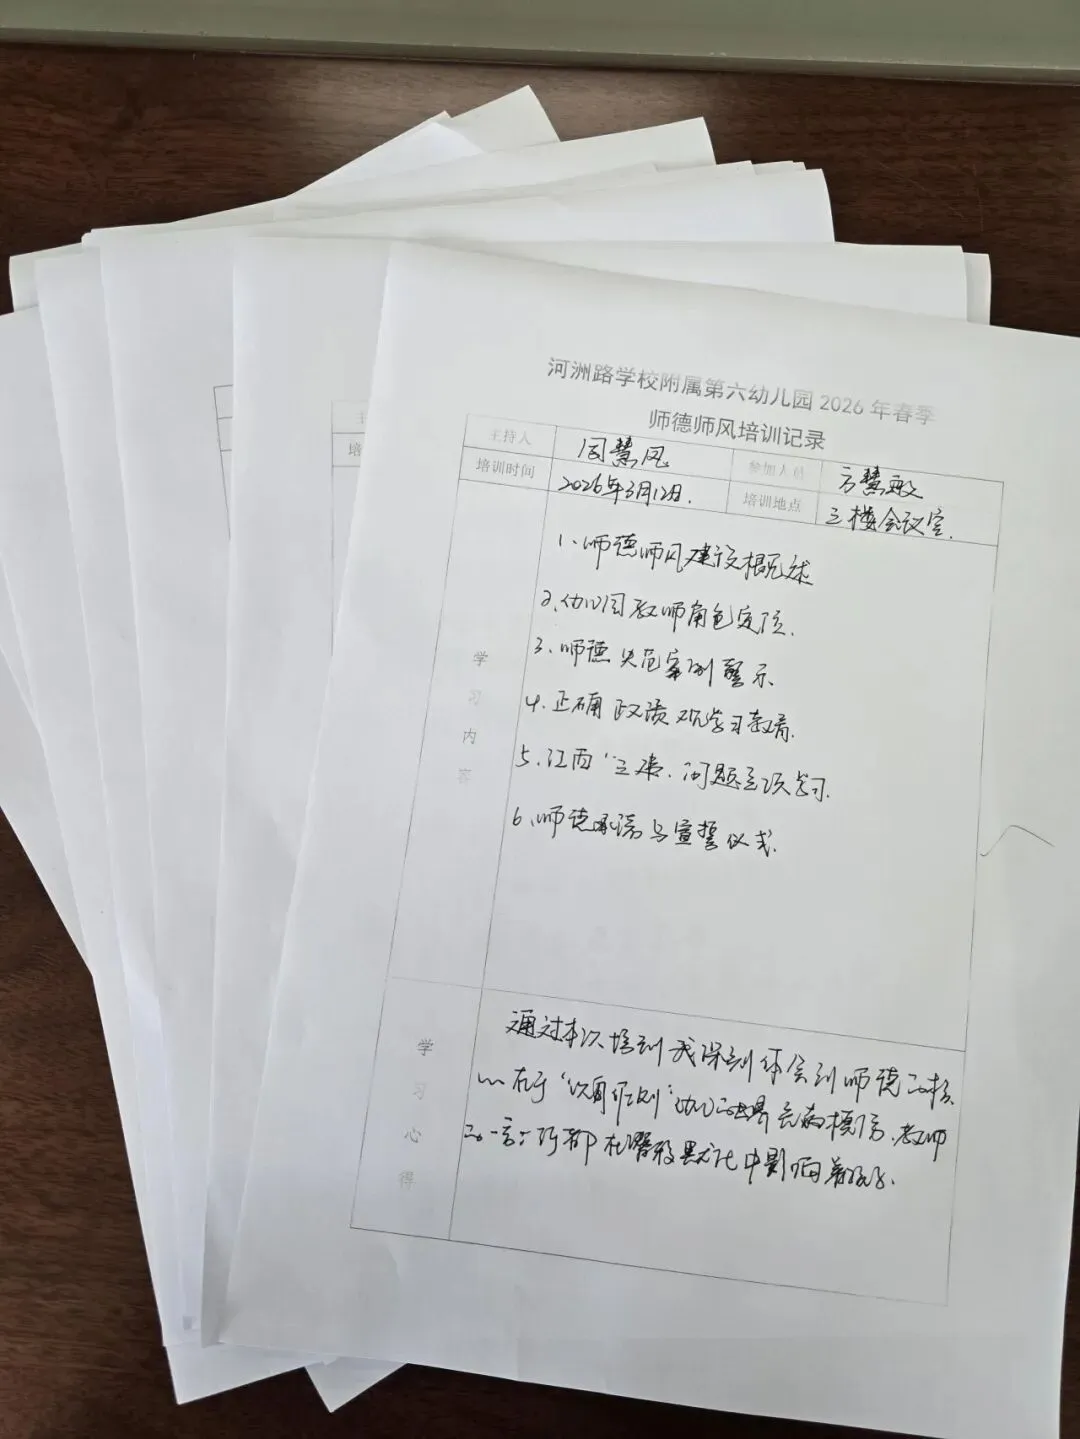 河洲路学校附属第六幼儿园2026年春季
师德师风培训记录
主持人 周慧凤 参加人员 方慧敏
培训时间 2026年3月12日. 培训地点 三楼会议室.
学习内容
1、师德师风建设概述
2、幼儿园教师角色定位.
3、师德失范案例警示
4、正确政绩观学习教育.
5、江西"三事"问题专项学习.
6、师德承诺与宣誓仪式.
学习心得
通过本次培训我深刻体会到师德的核
心在于"以身作则"幼儿 教师
的一言一行都在潜移默化中影响着孩子.
主
培